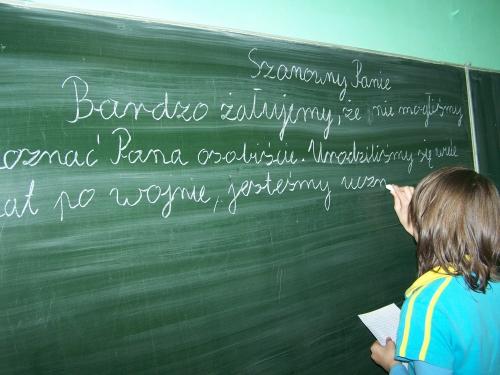 Szanowny Panie
Bardzo żałujemy, że nie mogliśmy
oznać Pana osobiście. Urodziliśmy się wiele
at po wojnie, jesteśmy uczn